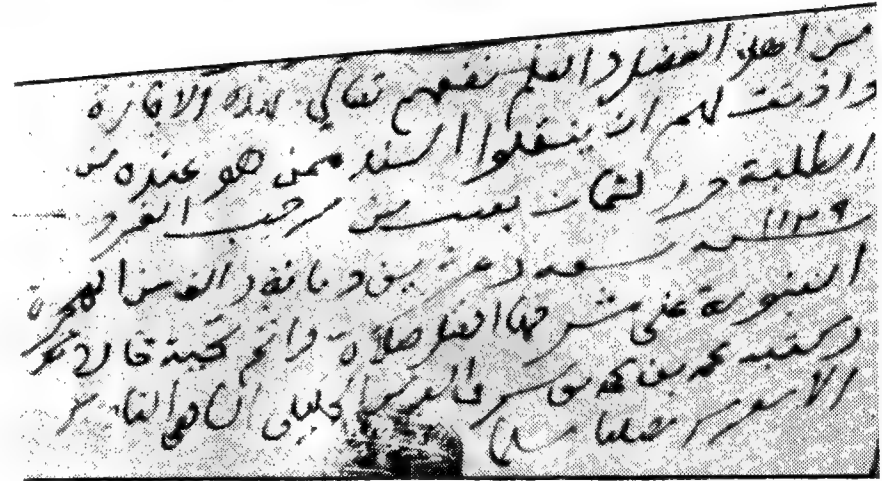 من اهل الفضل والعلم نفعهم تعالى بهذه الاجازة
واذنت لهم ان ينقلوا السند ممن هو عنده من
الطلبة حرر لثمان بعين من رجب الفرد
١١٢٩ سنه تسعه وعشرين ومائة والف من الهجرة
النبوية على مشرفها افضل صلاة واتم تحية قاله
وكتبه محمد بن محمد بن شرف الدين الخليلي الشافعي القادري
الاشعري مصليا مسلما